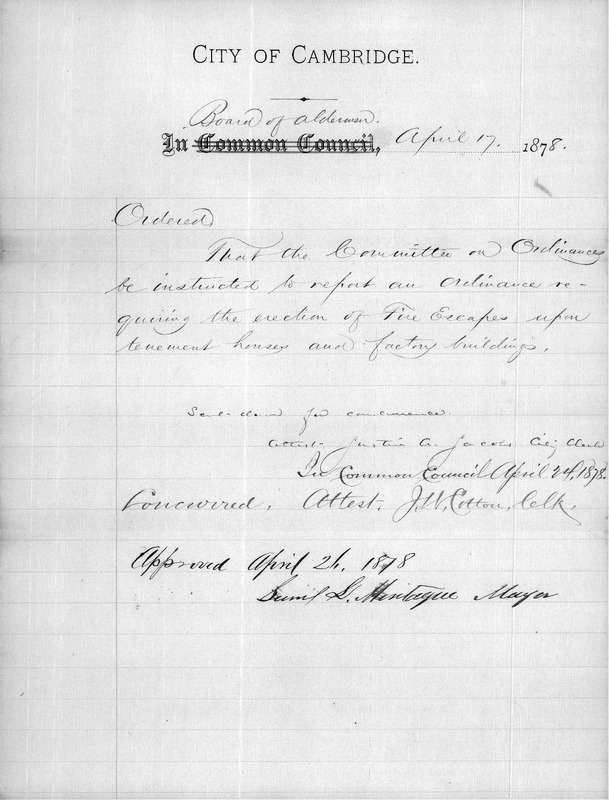 CITY OF CAMBRIDGE.
Board of Aldermen.
In Common Council, April 17. 1878.
Ordered,
That the Committee on Ordinances
be instructed to report an Ordinance re-
quiring the erection of Fire Escapes upon
tenement houses and factory buildings.
Sent down for concurrence.
Attest. Justin A. Jacobs City Clerk
In Common Council April 24, 1878.
Concurred. Attest, J. W. Cotton, Clk.
Approved April 26, 1878
Saml L. Montague Mayor